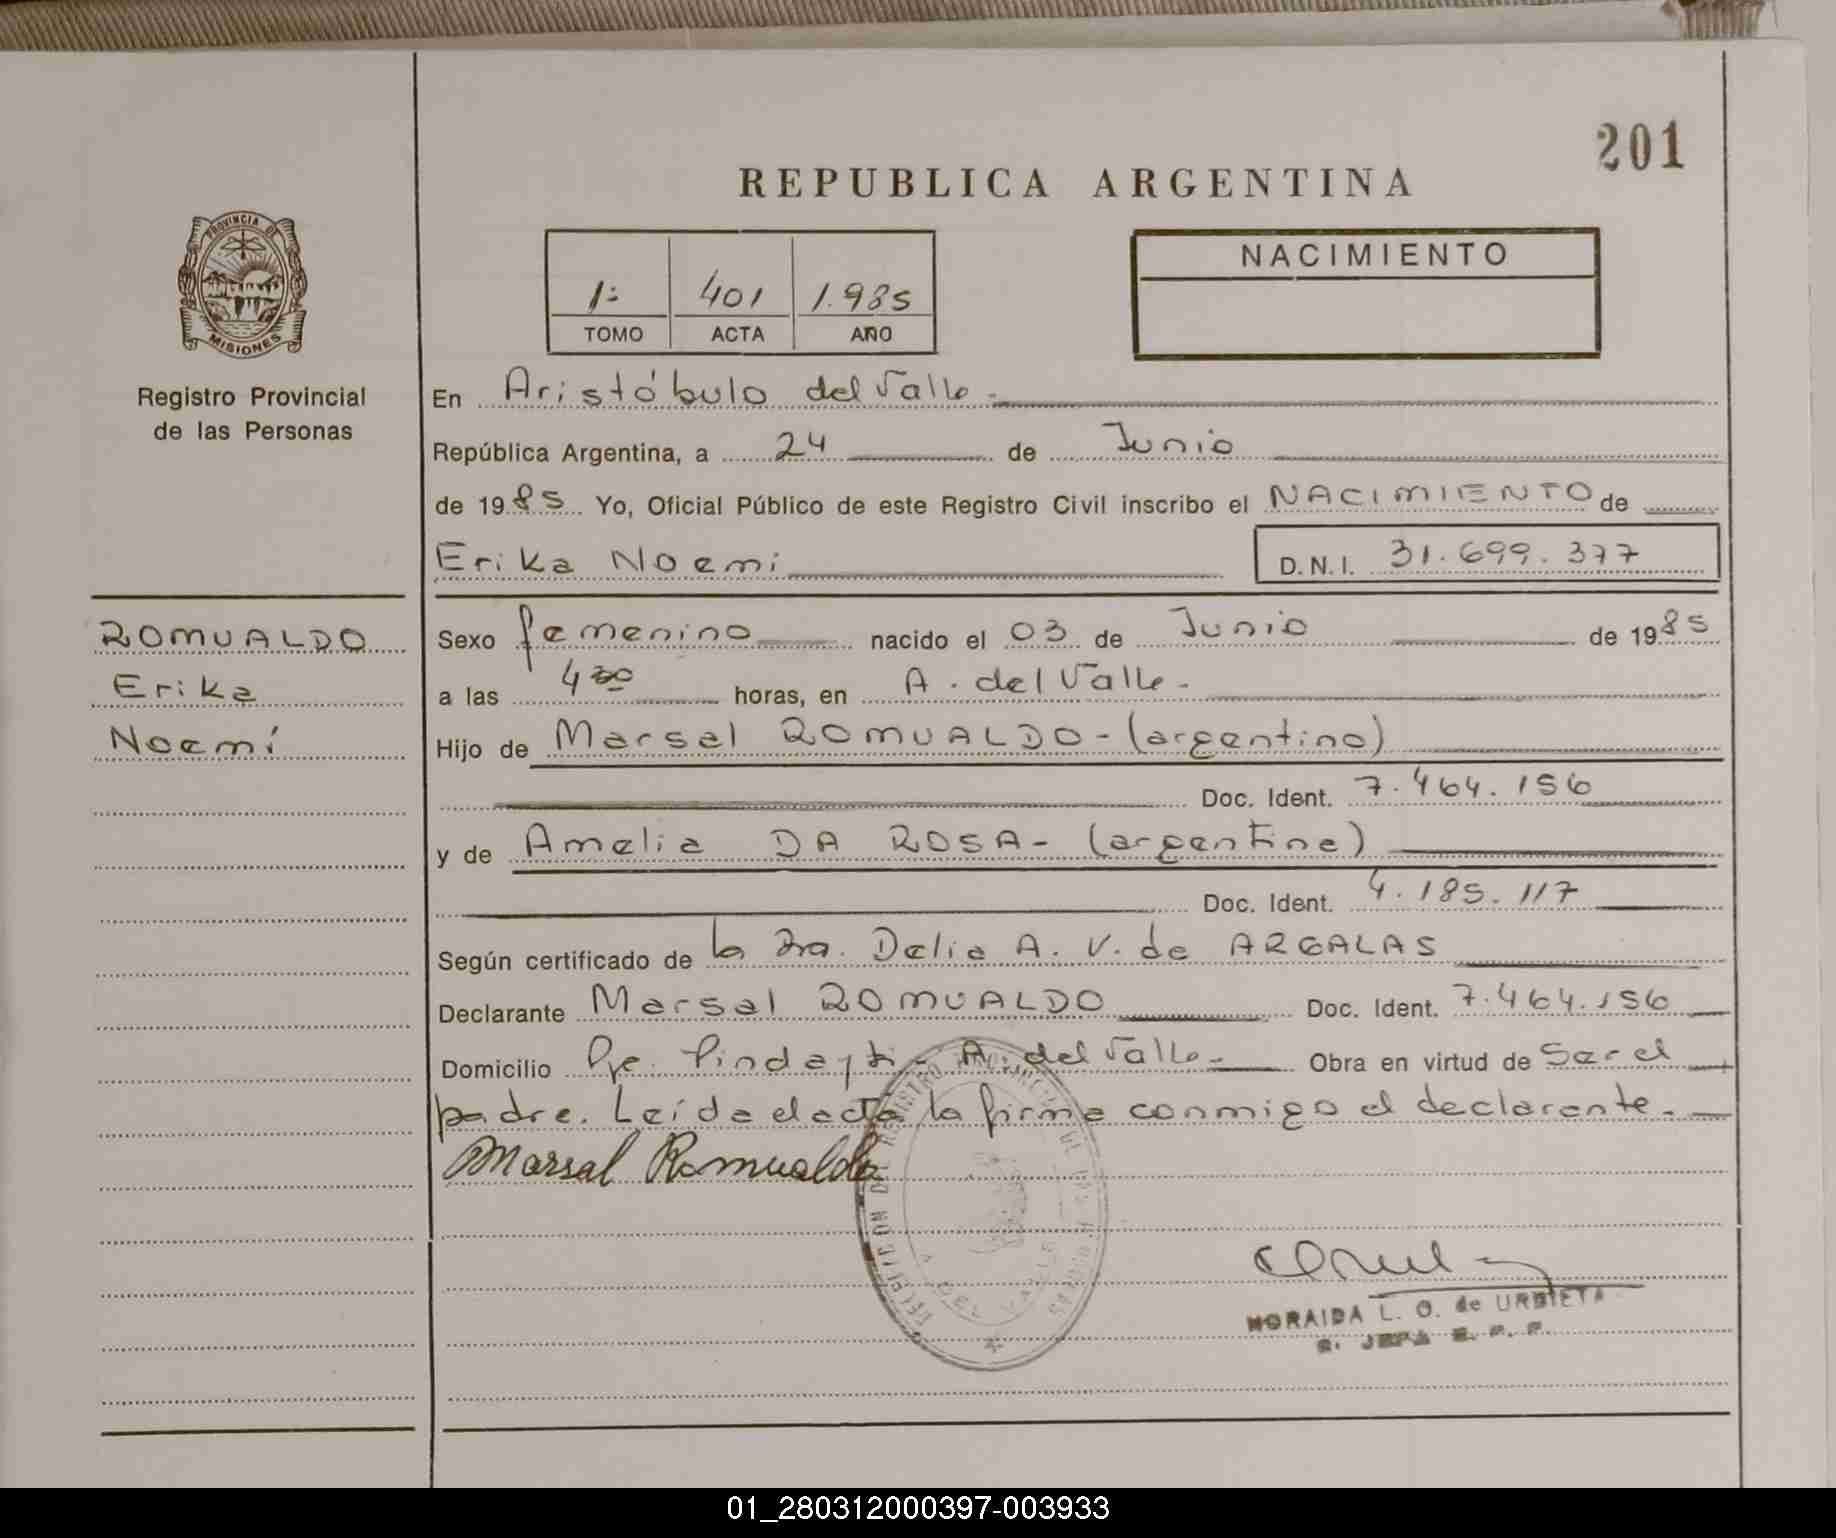 201
REPUBLICA ARGENTINA
PROVINCIA DE
MISIONES
Registro Provincial
de las Personas
1º 401 1.985
TOMO ACTA AÑO
NACIMIENTO
En Aristóbulo del Valle.
República Argentina, a 24 de Junio
de 1985 Yo, Oficial Público de este Registro Civil inscribo el NACIMIENTO de
Erika Noemi D.N.I. 31.699.377
ROMUALDO
Erika
Noemí
Sexo femenino nacido el 03 de Junio de 1985
a las 4 30 horas, en A. del Valle.
Hijo de Marsal ROMUALDO - (argentino)
Doc. Ident. 7.464.156
y de Amelia DA ROSA - (argentina)
Doc. Ident. 4.185.117
Según certificado de la Dra. Delia A. V. de ARGALAS
Declarante Marsal ROMUALDO Doc. Ident. 7.464.156
Domicilio Pje. Pindayti - A. del Valle - Obra en virtud de Ser el
padre. Leída el acta la firma conmigo el declarante.
Marsal Romualdo
A. DEL VALLE
NORAIDA L. O. de URBIETA
01_280312000397-003933